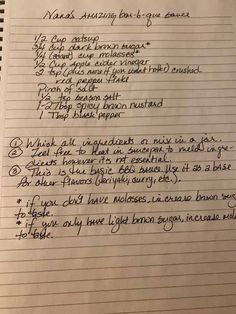 Nana's Amazing bar-b-que sauce
1/2 Cup catsup
3/4 Cup dark brown sugar*
1/4 (about) cup molasses*
1/2 Cup apple cider vinegar
2 tsp (plus more if you want hotter) crushed
red pepper flake
Pinch of salt
1/2 tsp season salt
1-2 Tbsp spicy brown mustard
1 Tbsp black pepper
① Whisk all ingredients or mix in a jar.
② Feel free to heat in saucepan to meld ingre-
dients however its not essential.
③ This is the basic BBQ sauce. Use it as a base
for other flavors (teriyaki, curry, etc.).
* if you don't have molasses, increase brown sug
to taste.
* if you only have light brown sugar, increase mol
to taste.